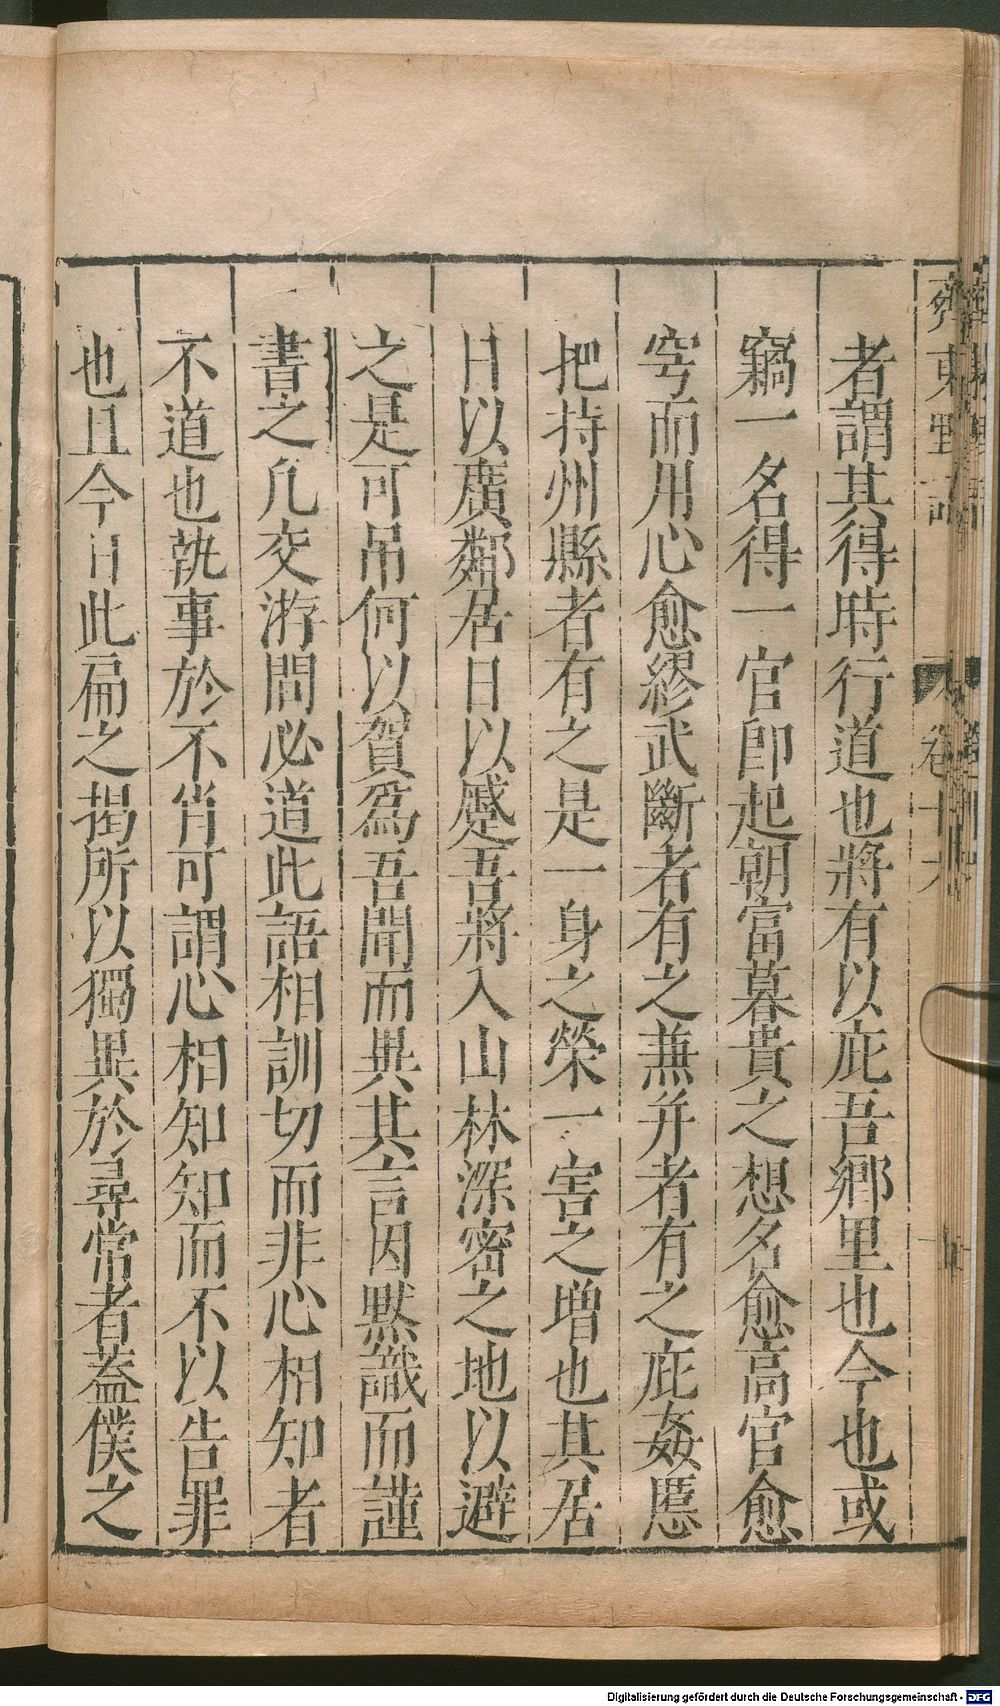 者謂其得時行道也將有以庇吾鄉里也今也或
竊一名得一官即起朝富暮貴之想名愈高官愈
穹而用心愈繆武斷者有之兼并者有之庇姦慝
把持州縣者有之是一身之榮一害之増也其居
日以廣鄰居日以蹙吾將入山林深密之地以避
之是可吊何以賀爲吾聞而異其言因默識而謹
書之凡交游問必道此語相訓切而非心相知者
不道也執事於不肖可謂心相知知而不以告罪
也且今日此扁之揭所以獨異於尋常者蓋僕之
Digitalisierung gefördert durch die Deutsche Forschungsgemeinschaft - DFG